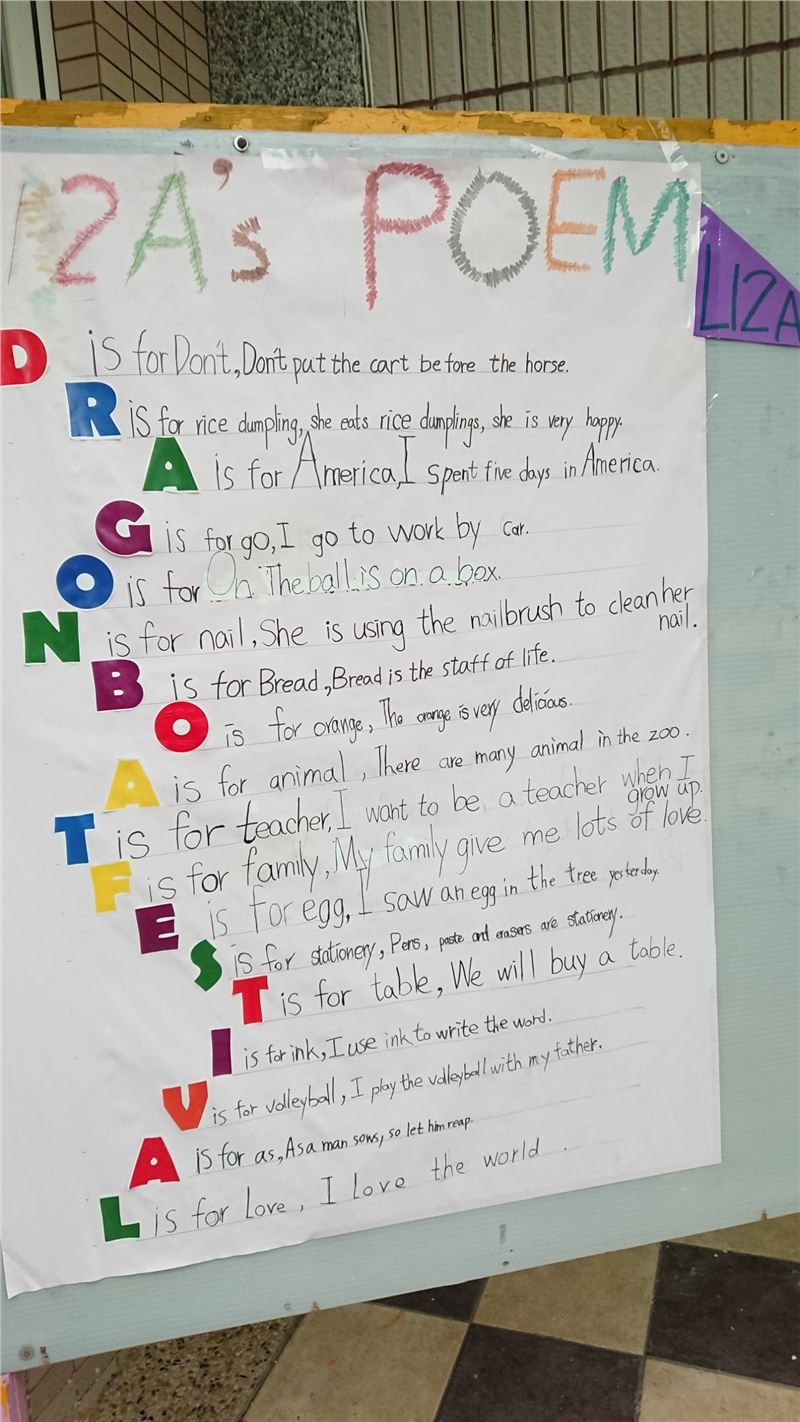 LIZA's POEM
LIZA
D is for Don't, Don't put the cart before the horse.
R is for rice dumpling, she eats rice dumplings, she is very happy.
A is for America, I spent five days in America.
G is for go, I go to work by car.
O is for On. The ball is on a box.
N is for nail, She is using the nailbrush to clean her
nail.
B is for Bread, Bread is the staff of life.
O is for orange, The orange is very delicious.
A is for animal, There are many animal in the zoo.
T is for teacher, I want to be a teacher when I
grow up.
F is for family, My family give me lots of love.
E is for egg, I saw an egg in the tree yesterday.
S is for stationery, Pens, paste and erasers are stationery.
T is for table, We will buy a table.
I is for ink, I use ink to write the word.
V is for volleyball, I play the volleyball with my father.
A is for as, As a man sows, so let him reap.
L is for Love, I Love the world.